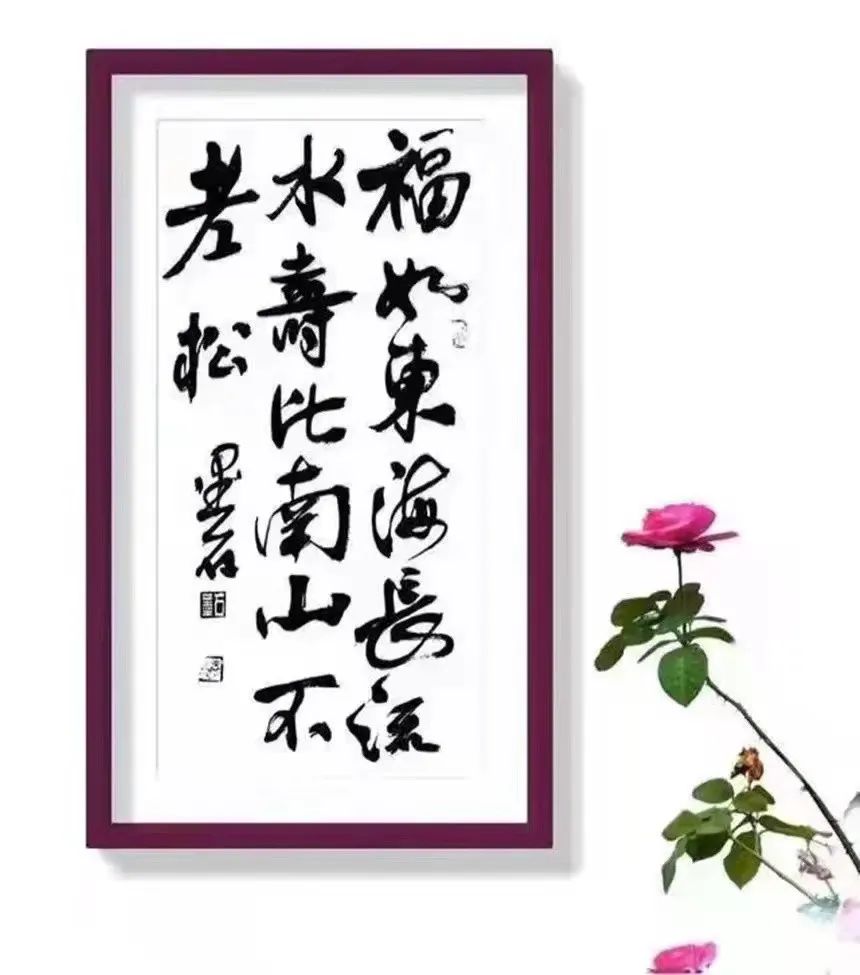 福如東海長流
水壽比南山不
老松
墨石